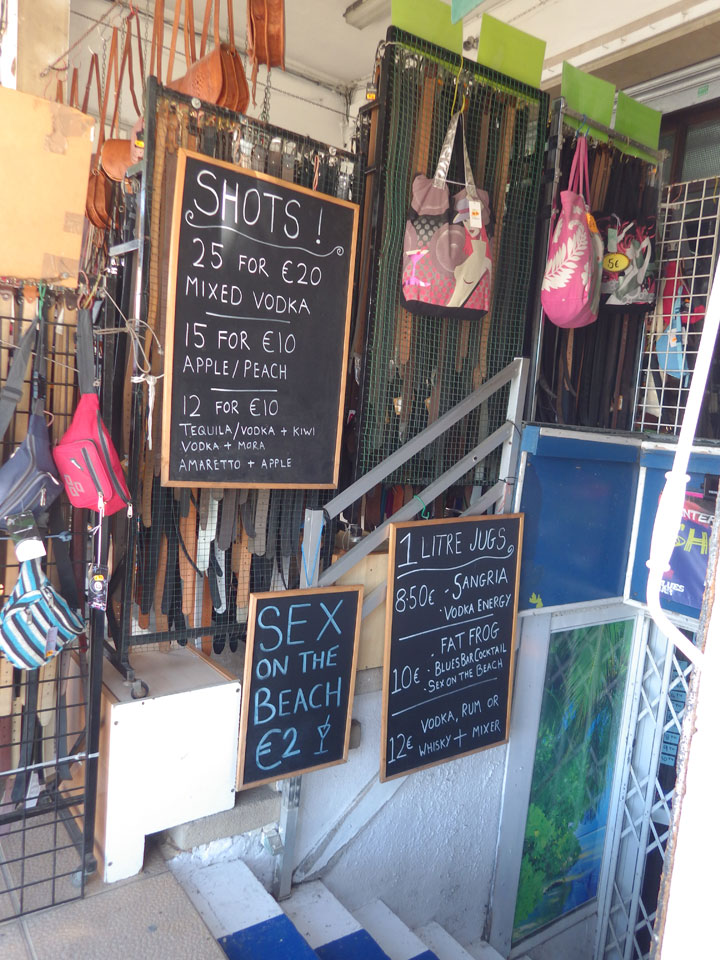 SHOTS!
25 FOR €20
MIXED VODKA
15 FOR €10
APPLE/PEACH
12 FOR €10
TEQUILA/VODKA + KIWI
VODKA + MORA
AMARETTO + APPLE
5€
SEX
ON THE
BEACH
€2
1 LITRE JUGS
8.50€ · SANGRIA
· VODKA ENERGY
· FAT FROG
10€ · BLUESBAR COCKTAIL
· SEX ON THE BEACH
VODKA, RUM OR
12€ WHISKY + MIXER